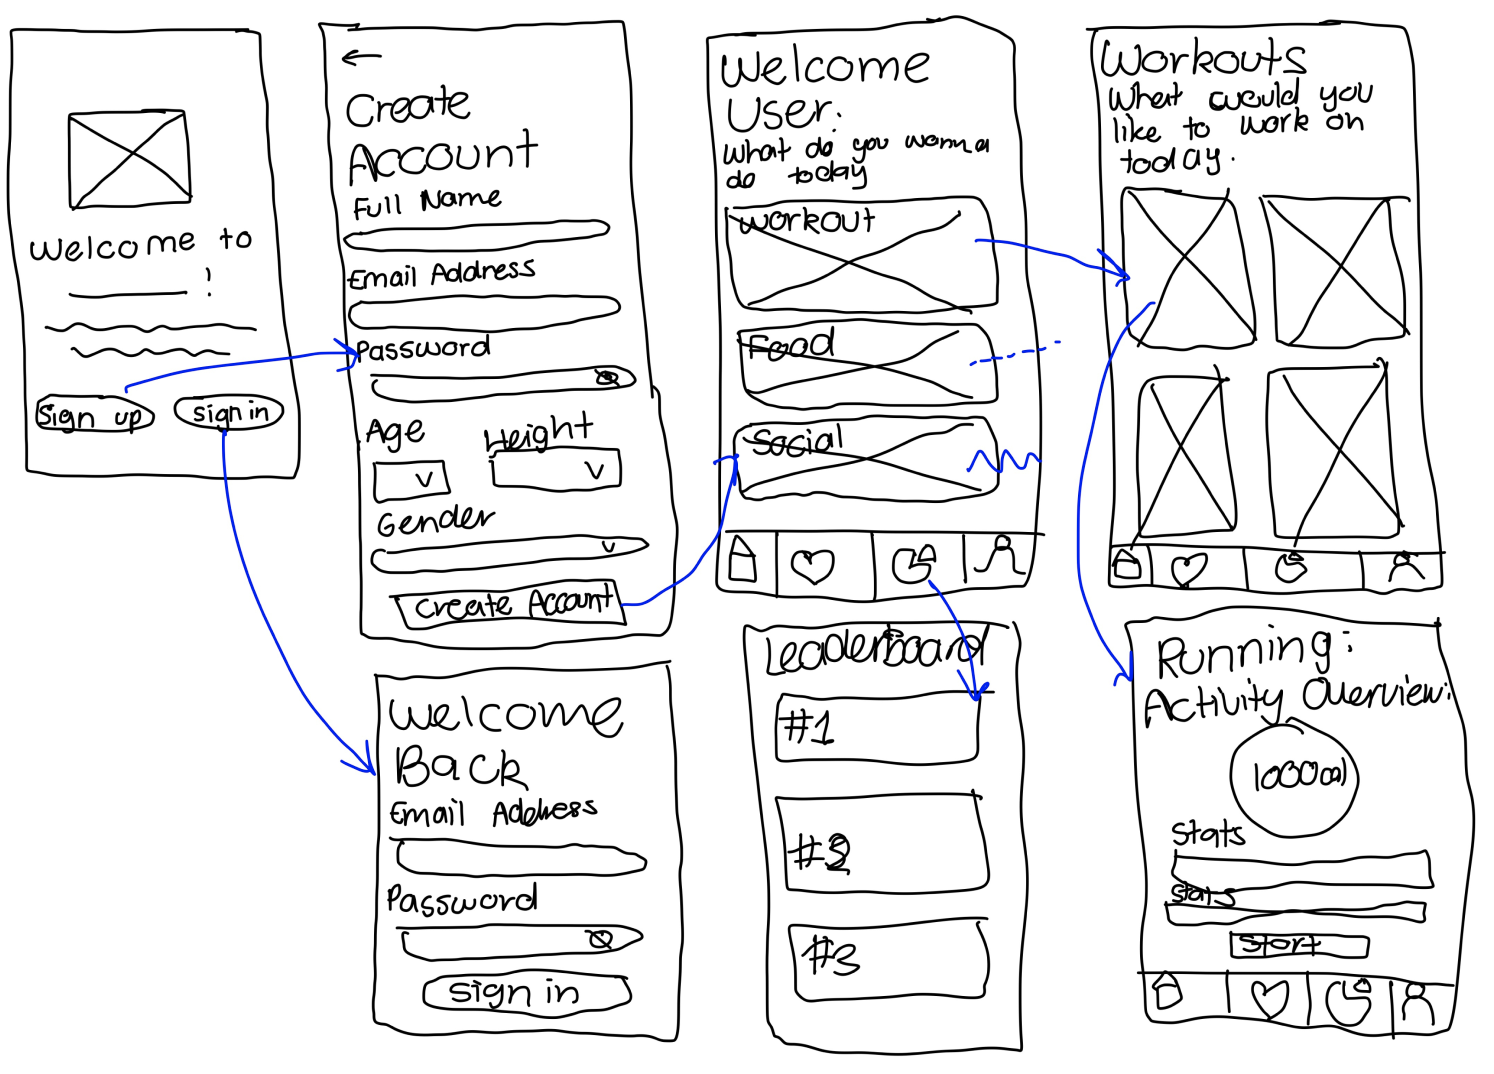 Welcome to
!
Sign up
sign in
Create
Account
Full Name
Email Address
Password
Age
Height
Gender
Create Account
Welcome
Back
Email Address
Password
sign in
Welcome
User.
What do you wanna
do today
Workout
Food
Social
Leaderboard
#1
#2
#3
Workouts
What would you
like to work on
today.
Running:
Activity Overview:
1000cal
Stats
Stats
Start